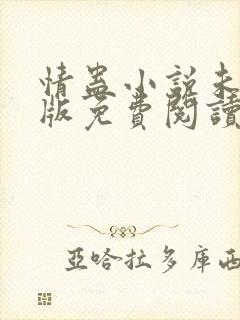 情蛊小説未
版免費閱讀
亞哈拉多庫西